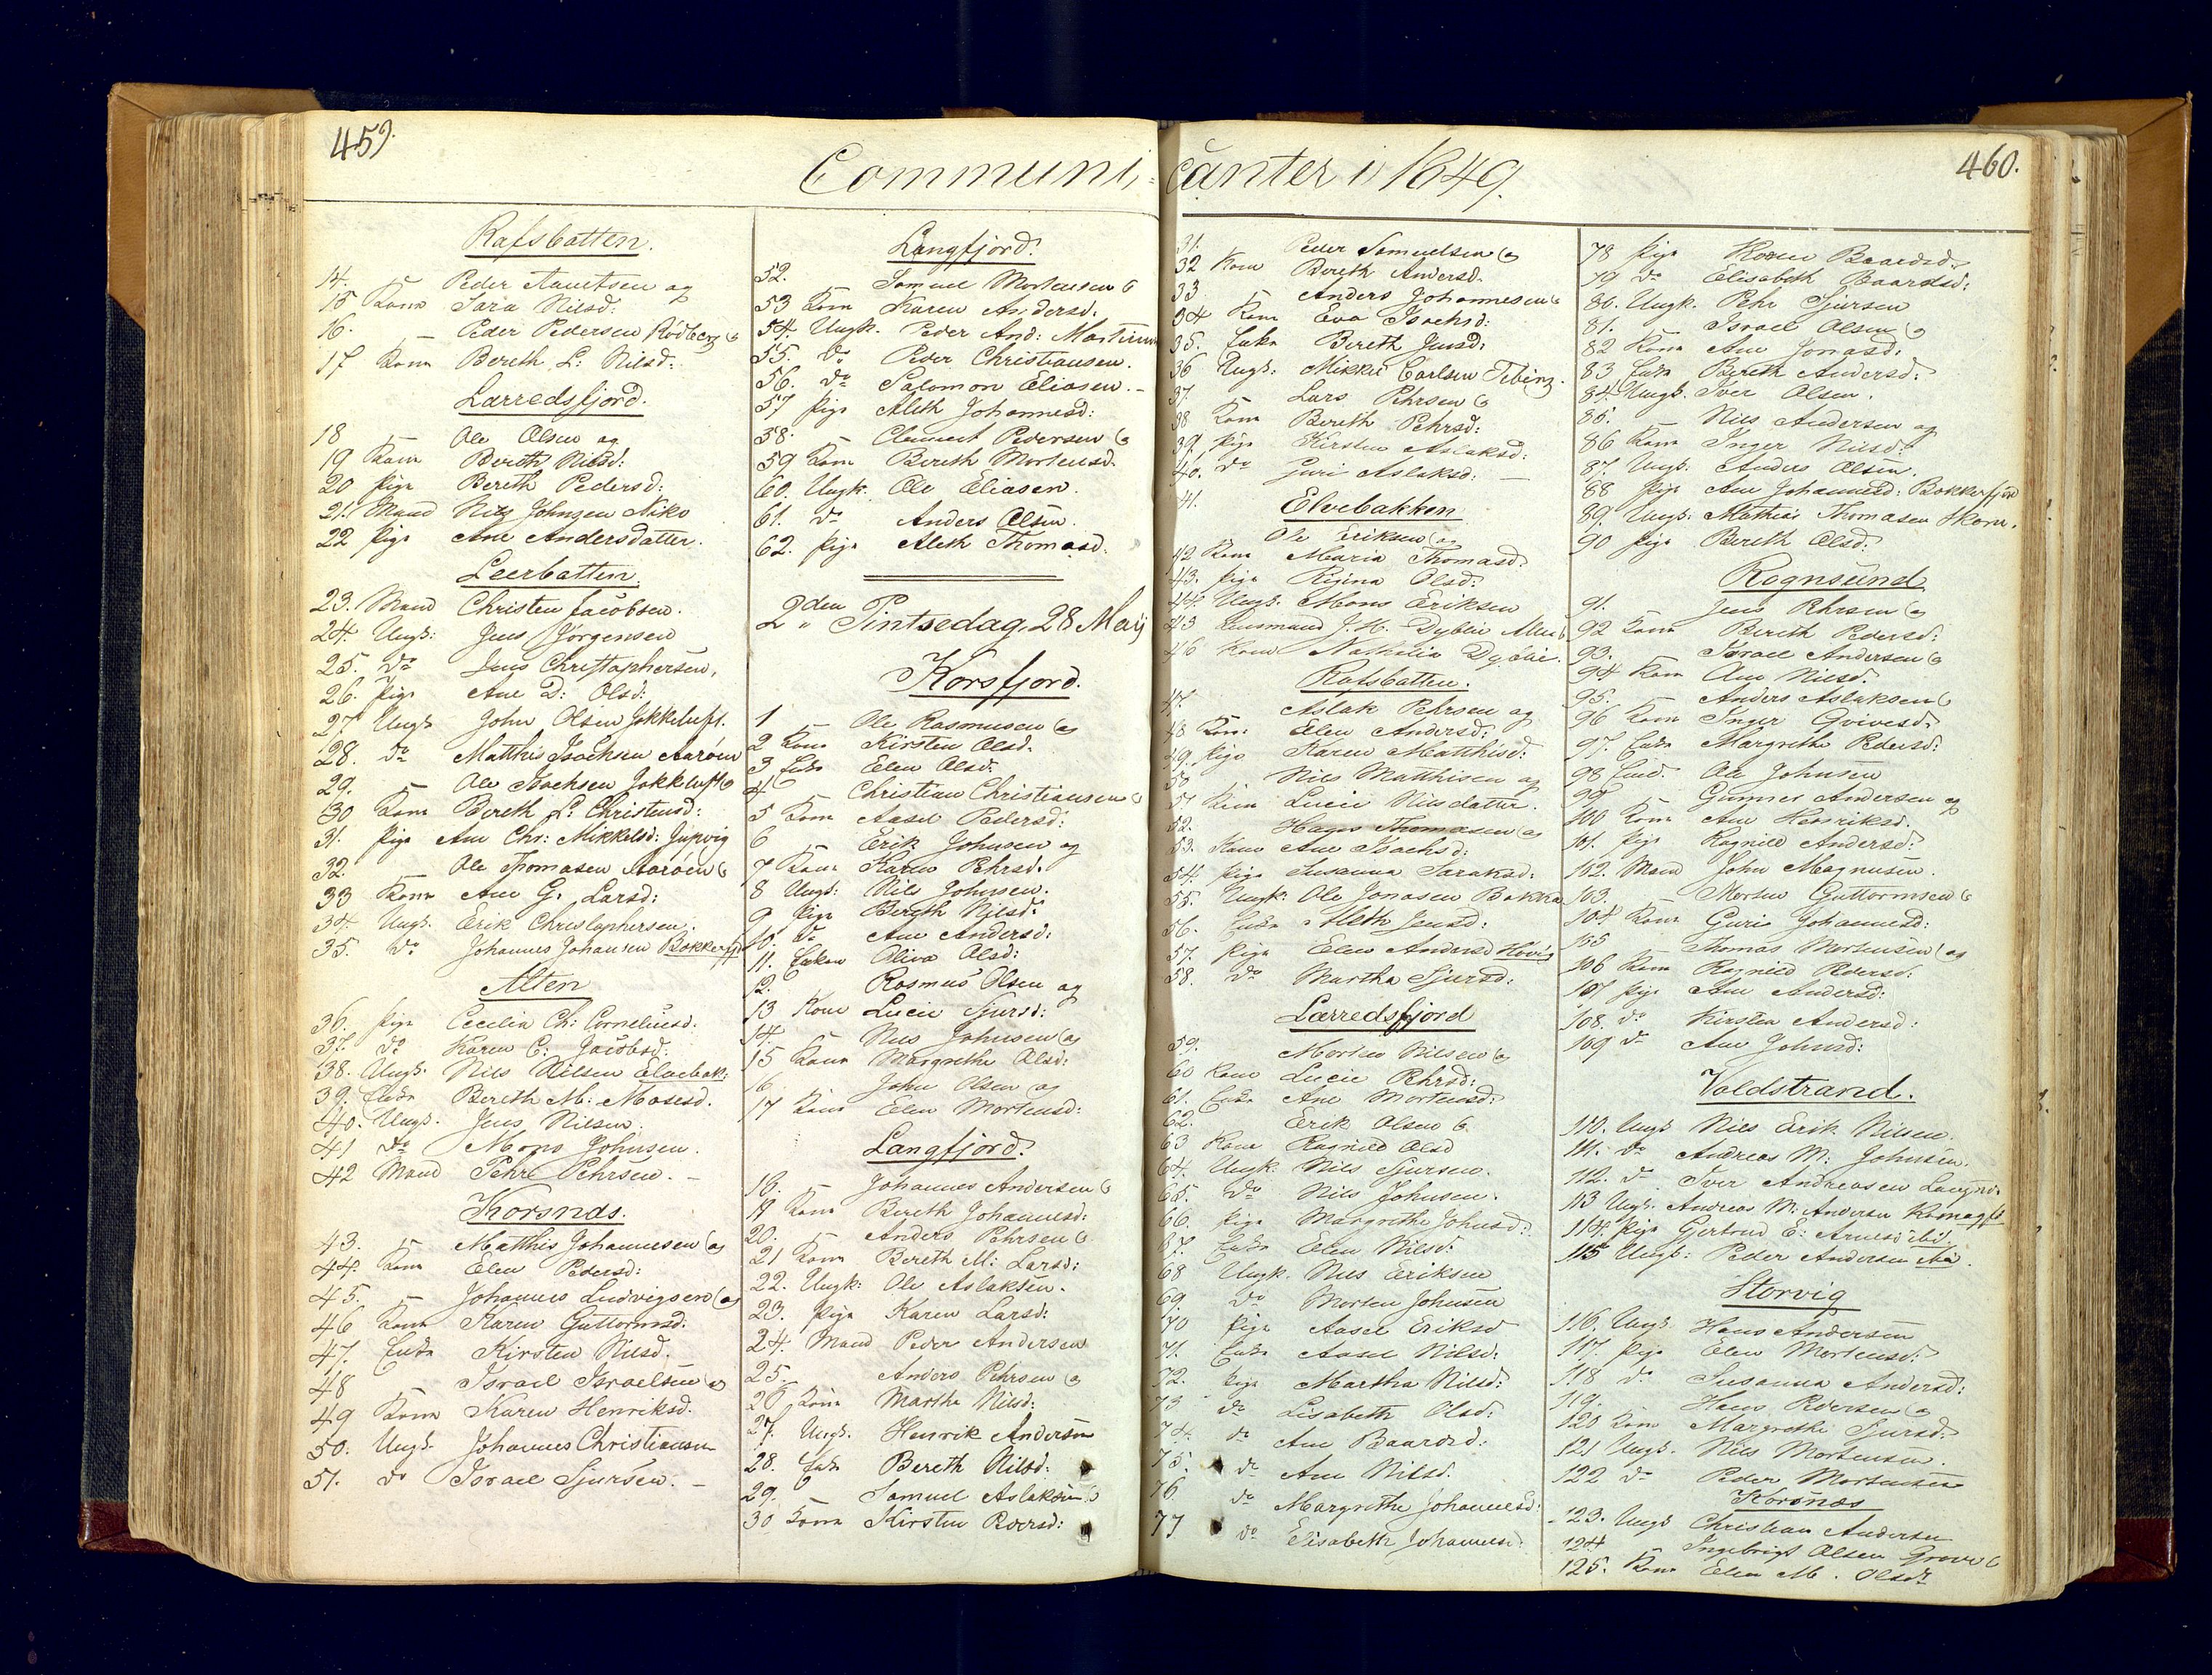 459.
Communi-
Rafsbotten.
14. Peder Aanetsen og
15 Kone Sara Nilsd:
16. – Peder Pedersen Rødberg og
17 Kone Bereth L: Nilsd:
Lærredsfjord.
18 – Ole Olsen og
19 Kone Bereth Nilsd:
20 Pige Bereth Pedersd:
21. Mand Nils Johnsen Niko
22 Pige Ane Andersdatter.
Leerbotten.
23. Mand Christen Jacobsen.
24. Ungk: Jens Jørgensen
25. do Jens Christophersen.
26. Pige Ane D: Olsd:
27 Ungk John Olsen Jokkeluft.
28. do Matthis Isachsen Aarøen
29. – Ole Isachsen Jokkeluft og
30 Kone Bereth L: Christensd:
31. Pige Ane Chr: Mikkelsd: Jupvig
32. – Ole Thomasen Aarøen og
33 Kone Ane G. Larsd:
34. Ungk. Erik Christophersen.
35. do Johannes Johansen Bokkerfj.
Alten
36. Pige Cecilia Ch: Corneliusd.
37. do Karen C: Jacobsd:
38. Ungk. Nils Nilsen Elvebak:
39. Enke Bereth M: Mosesd.
40. Ungk. Jens Nilsen.
41 do Mons Johnsen.
42 Mand Pehr Pehrsen. –
Korsnæs.
43. – Matthis Johannesen og
44. Kone Elen Pedersd:
45. – Johannes Ludvigsen og
46 Kone Karen Guttormsd:
47. Enke Kirsten Nilsd.
48 Israel Israelsen og
49 Kone Karen Henriksd.
50. Ungk. Johannes Christiansen
51. do Israel Sjursen. –
Langfjord.
52. – Samuel Mortensen og
53 Kone Karen Andersd.
54. Ungk. Peder And: Mortensen
55. do Peder Christiansen.
56. do Salomon Eliasen. –
57 Pige Aleth Johannesd:
58. – Clemet Pedersen og
59 Kone Bereth Mortensd.
60. Ungk. Ole Eliasen.
61. do Anders Olsen.
62. Pige Aleth Thomasd.
2den Pintsedag, 28 Maij
Korsfjord.
1 – Ole Rasmusen og
2 Kone Kirsten Olsd.
3 Enke Elen Olsd.
4 – Christian Christiansen og
5 Kone Aasel Pedersd:
6 – Erik Johnsen og
7 Kone Karen Pehrsd.
8 Ungk: Nils Johnsen.
9 Pige Bereth Nilsd:
10. do Ane Andersd:
11. Enken Oliva Olsd:
12. Rasmus Olsen og
13 Kone Lucie Sjursd:
14. – Nils Johnsen og
15 Kone Margrethe Olsd:
16 John Olsen og
17 Kone Elen Mortensd:
Langfjord.
18. – Johannes Andersen og
19 Kone Bereth Johannesd:
20. – Anders Pehrsen og
21 Kone Bereth M: Larsd:
22. Ungk: Ole Aslaksen.
23. Pige Karen Larsd:
24. Mand Peder Andersen
25. – Anders Pehrsen og
26 Kone Martha Nilsd:
27. Ungk. Henrik Andersen
28. Enke Bereth Nilsd:
29. Samuel Aslaksen og
30 Kone Kirsten Pedersd:
460.
canter i 1849.
31. Peder Samuelsen og
32 Kone Bereth Andersd.
33 – Anders Johannesen og
34 Kone Eva Isachsd:
35. Enke Bereth Jensd:
36 Ungk: Mikkel Carlsen Tibing.
37. Lars Pehrsen og
38 Kone Bereth Pehrsd:
39. Pige Kirsten Aslaksd:
40. do Guri Aslaksd: –
41. Elvebakken
Ole Eriksen og
42 Kone Maria Thomasd.
43. Pige Regina Olsd:
44. Ungk. Mons Eriksen
45 Lensmand J. H. Dyblie
46 Kone Nathalia Dyblie.
Rafsbotten.
47. Aslak Pehrsen og
48 Kone Elen Andersd:
49. Pige Karen Matthisd:
50 Nils Matthisen og
51 Kone Lucie Nilsdatter.
52. Hans Thomasen og
53. Kone Ane Isachsd:
54. Pige Susanna Saraksd:
55. Ungk: Ole Jonasen Bokka
56. Enke Aleth Jensd:
57. Pige Elen Andersd
58. do Martha Sjursd:
Lærredsfjord
59. Morten Nilsen og
60 Kone Lucie Pehrsd:
61. Enke Ane Mortensd:
62. Erik Olsen og
63 Kone Ragnild Olsd
64. Ungk. Nils Sjursen.
65. do Nils Johnsen.
66. Pige Margrethe Johnsd:
67. Enke Elen Nilsd:
68 Ungk. Nils Eriksen
69 do Morten Johnsen
70 Pige Aasel Eriksd
71. Enke Aasel Nilsd:
72. Pige Martha Nilsd:
73 do Lisabeth Olsd:
74. do Ane Baardsd:
75. do Ane Nilsd:
76. do Margrethe Johannesd:
77 do Elisabeth Johannesd:
78 Pige Karen Baardsd.
79 do Elisabeth Baardsd:
80. Ungk. Pehr Sjursen
81. – Israel Olsen og
82 Kone Ane Jonasd:
83 Enke Bereth Andersd:
84. Ungk. Iver Olsen.
85. – Nils Andersen og
86 Kone Inger Nilsd:
87. Ungk: Anders Olsen.
88 Pige Ane Johannesd: Bokkerfjord
89. Ungk: Mathis Thomasen
90 Pige Bereth Olsd:
Rognsund
91. Jens Pehrsen og
92 Kone Bereth Pedersd:
93. – Israel Andersen og
94 Kone Ane Nilsd.
95. – Anders Aslaksen og
96 Kone Inger
97. Enke Margrethe Pedersd:
98 Ole Johnsen
99 Gunner Andersen og
100 Kone Ane Henriksd.
101. Pige Ragnild Andersd:
102. Mand John Magnusen.
103. – Morten Guttormsen og
104 Kone Guri Johannesd:
105 – Thomas Mortensen og
106 Kone Ragnild Pedersd:
107 Pige Ane Andersd:
108. do Kirsten Andersd:
109 do Ane Johnsd:
Voldstrand.
110. Ungk Nils Erik Nilsen.
111. do Andreas M: Johnsen.
112. do Iver Andreasen
113 Ungk. Andreas M: Andersen
114. Pige Gjertrud E: Arnesd ibid.
115 Ungk: Peder Andersen
Storvig
116. Ungk. Hans Andersen
117. Pige Elen Mortensd:
118 do Susanna Andersd:
119. Hans Pedersen og
120 Kone Margrethe Sjursd:
121 Ungk. Nils Mortensen.
122 do Peder Mortensen
Korsnæs
123. Ungk Christian Andersen
124 Ingebrigt Olsen Grove og
125. Kone Elen M. Olsd: